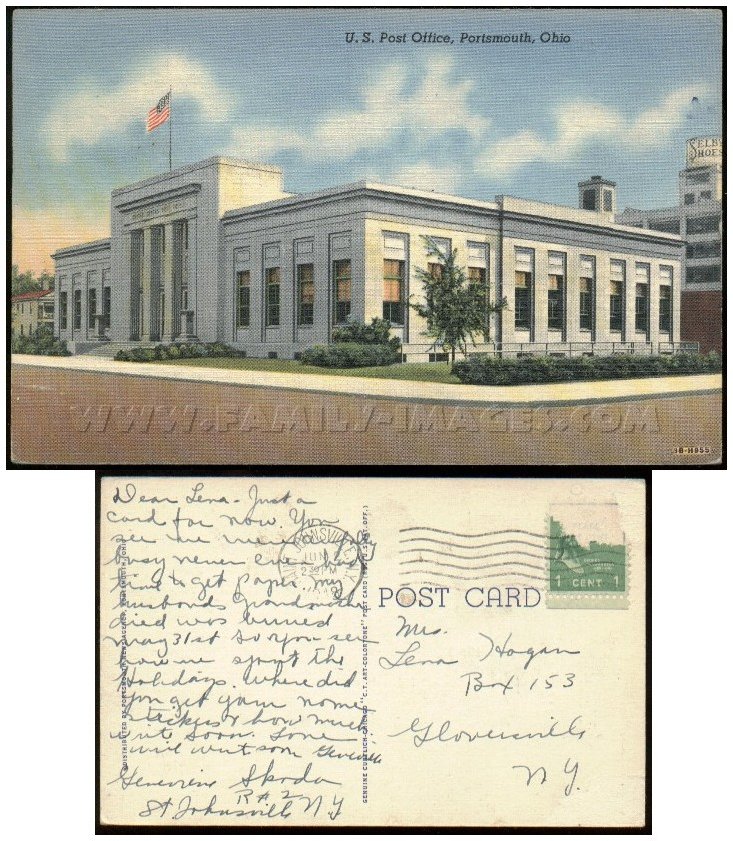 U. S. Post Office, Portsmouth, Ohio
SELBY
SHOES
WWW.FAMILY-IMAGES.COM
3B-H955
Dear Lena - Just a
card for now. You
see me we're
busy never
time to get paper my
husbands Grandmother
died was buried
may 31st So you see
how we spent the
Holidays. Where did
you get your name
stickers & how much
writ soon. Love
Genevieve Skoda
R#2
St Johnsville NY
JUN
2 30 PM
1 CENT 1
POST CARD
GENUINE CURTEICH-CHICAGO "C.T. ART-COLORTONE" POST CARD (REG. U.S. PAT. OFF.)
Mrs.
Lena Hogan
Box 153
Gloversville
NY.